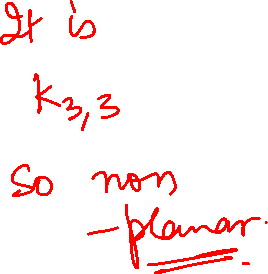 It is
K3,3
So non
-planar.